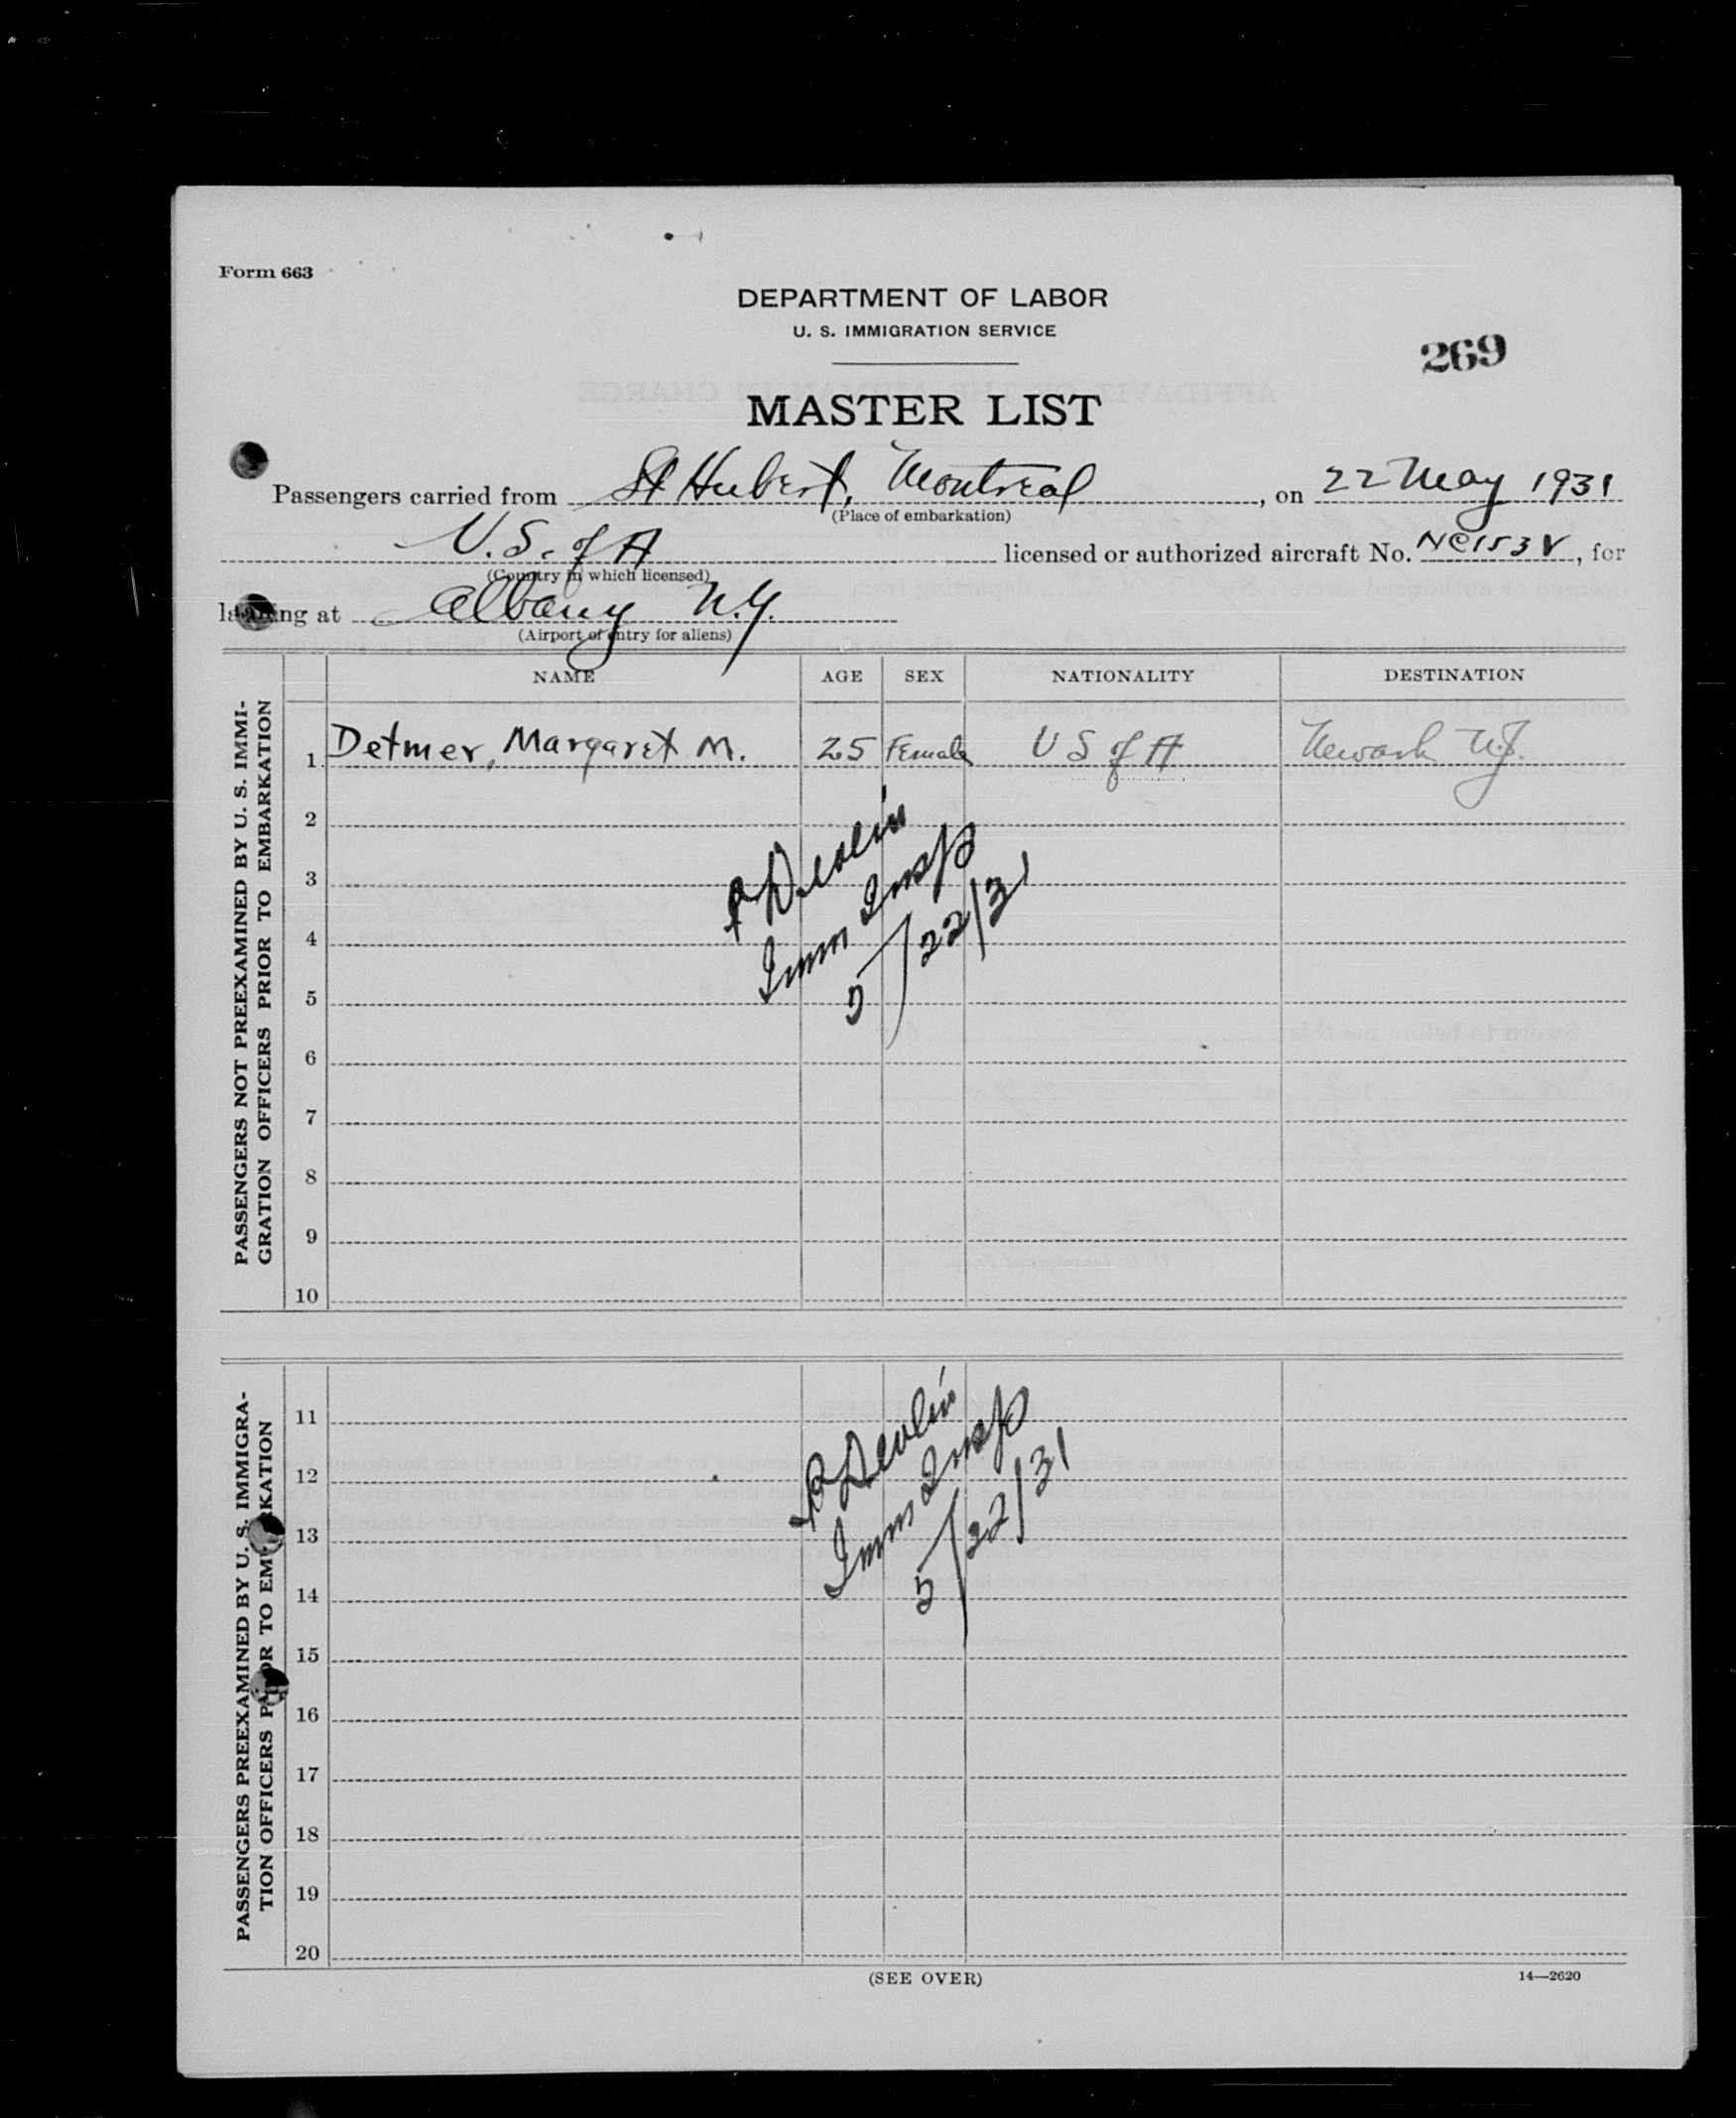 Form 663
DEPARTMENT OF LABOR
U. S. IMMIGRATION SERVICE
269
MASTER LIST
Passengers carried from St Hubert, Montreal, on 22 May 1931
(Place of embarkation)
U.S. of A licensed or authorized aircraft No. NC153V, for
(Country in which licensed)
landing at Albany N.Y.
(Airport of entry for aliens)
NAME AGE SEX NATIONALITY DESTINATION
PASSENGERS NOT PREEXAMINED BY U. S. IMMI-
GRATION OFFICERS PRIOR TO EMBARKATION
1 Detmer, Margaret M. 25 Female U S of A Newark N.J.
2
3
4
5
6
7
8
9
10
P Devlin
Imm Insp
5/22/31
PASSENGERS PREEXAMINED BY U. S. IMMIGRA-
TION OFFICERS PRIOR TO EMBARKATION
11
12
13
14
15
16
17
18
19
20
P Devlin
Imm Insp
5/22/31
(SEE OVER)
14—2620